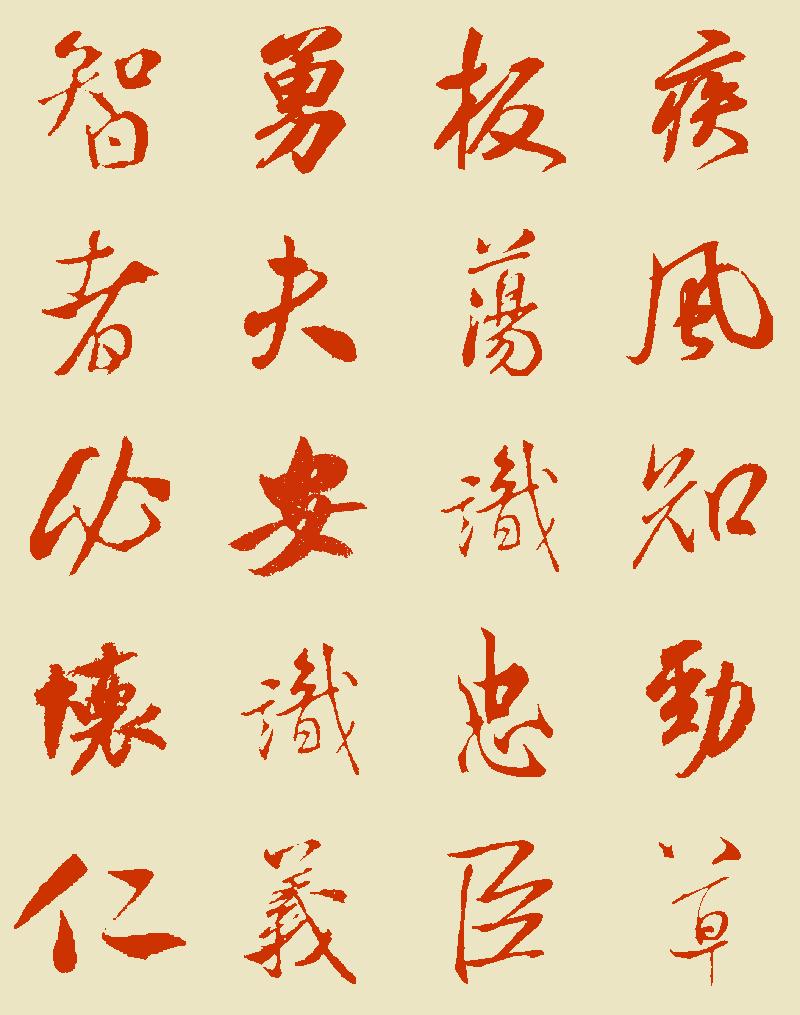 疾風知勁草
板蕩識忠臣
勇夫安識義
智者必懷仁